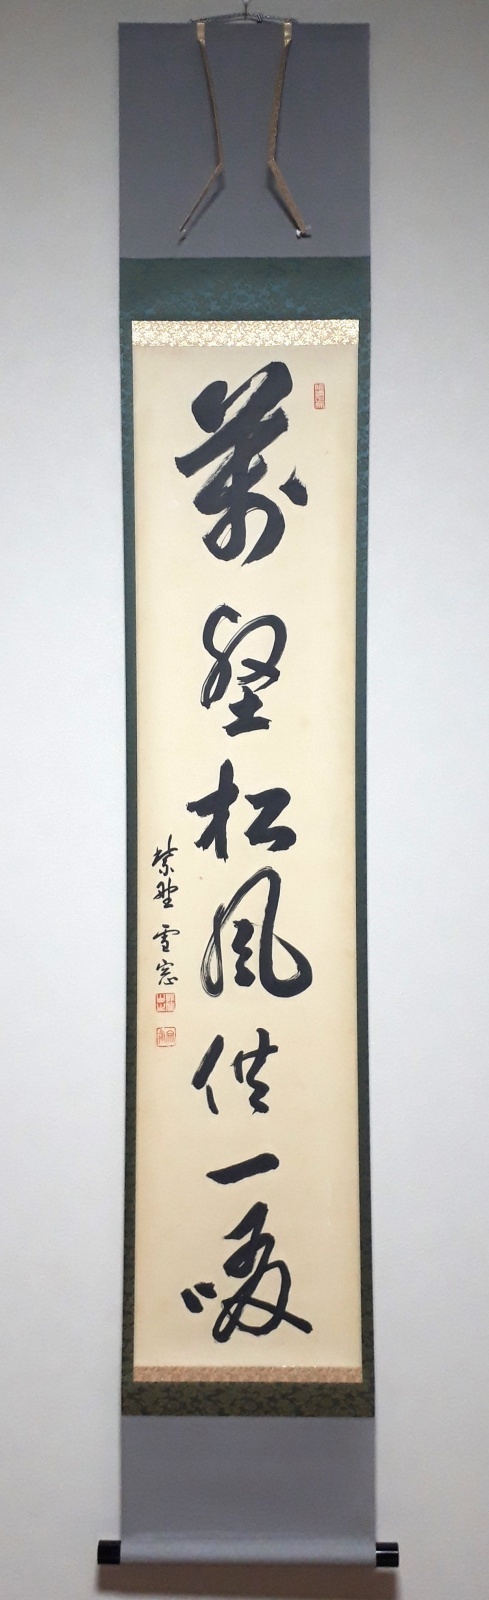 萬壑松風供一啜
紫野 雪窓